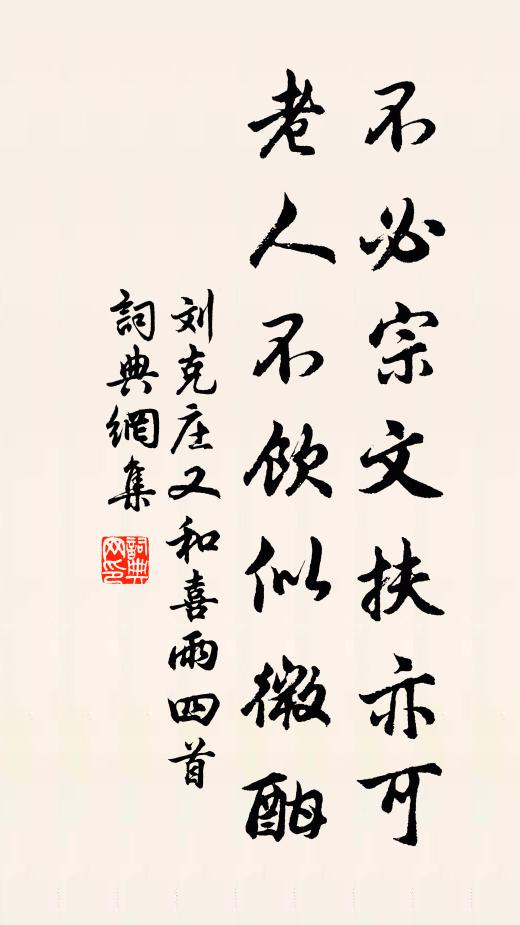 不必宗文扶亦可
老人不饮似微酣
刘克庄又和喜雨四首
詞典網集
詞典网印